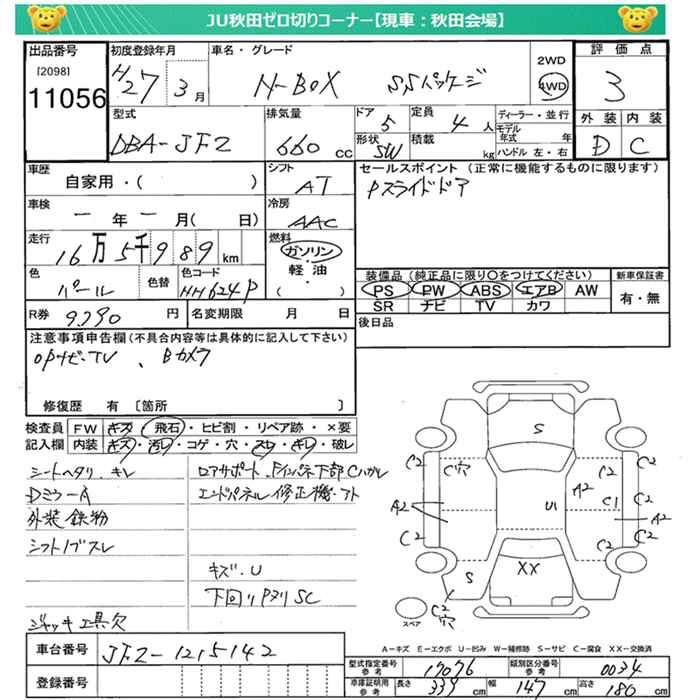 JU秋田ゼロ切りコーナー【現車：秋田会場】
出品番号 初度登録年月 車名・グレード 2WD 評価点
[2098] H27 3月 N-BOX SSパッケージ 4WD 3
11056
型式 排気量 ドア 定員 ディーラー・並行 外装 内装
DBA-JF2 660cc 5 4人 モデル年式 年 D C
形状 SW 積載 kg ハンドル 左・右
車歴 シフト セールスポイント (正常に機能するものに限ります)
自家用・( ) AT Pスライドドア
車検 冷房
ー年ー月( 日) AAC
走行 燃料
16万5千989km ガソリン・軽油・( )
装備品 (純正品に限り○をつけてください) 新車保証書
色 色替 色コード PS PW ABS エアB AW 有・無
パール NH624P SR ナビ TV カワ
R券 9390円 名変期限 月 日 後日品
注意事項申告欄(不具合内容等は具体的に記入して下さい)
OPナビ-TV、Bカメラ
修復歴 有 [箇所 ]
検査員 FW キズ 飛石・ヒビ割・リペア跡・×要
記入欄 内装 キズ・汚レ・コゲ・穴・スレ・キレ・破レ
シートヘタリ、キレ
Dミラ-A
外装 鉄粉
シフトノブスレ
ジャッキ工具欠
ロアサポート、Fインパネ下部Cハガレ
エンドパネル修正機・アト
キズ・U
下回りPヌリSC
S
C2 C穴 C2 C2
A2 U1 A2 C1 A2
C2 C2 C2
S XX
スペア C2穴
A-キズ E-エクボ U-凹み W-補修跡 S-サビ C-腐食 XX-交換済
車台番号 JF2-1215142
型式指定番号 参考 17076 類別区分番号 参考 0034
登録番号
車庫証明用 参考 長さ 339cm 幅 147cm 高さ 180cm